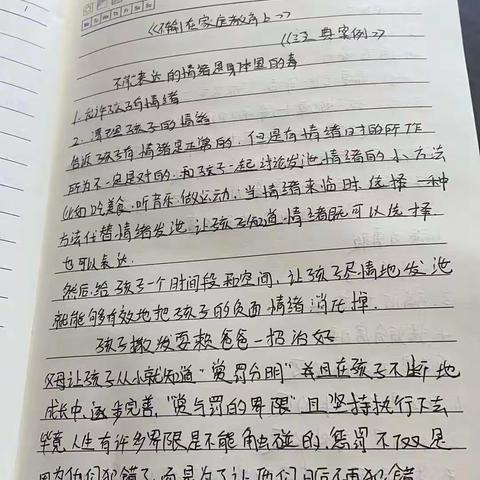 《不输在家庭教育上》
《三三典案例》
不能表达的情绪是身体里的毒
1. 允许孩子有情绪
2. 清理孩子的情绪
告诉孩子有情绪是正常的，但是有情绪时的所作
所为不一定是对的，和孩子一起讨论发泄情绪的小方法
比如吃美食、听音乐、做运动，当情绪来临时，选择一种
方法代替情绪发泄，让孩子知道情绪既可以选择
也可以表达．
然后给孩子一个时间段和空间，让孩子尽情地发泄
就能够有效地把孩子的负面情绪消化掉．
孩子撒泼耍赖爸爸一招治好
父母让孩子从小就知道"赏罚分明"并且在孩子不断地
成长中，逐步完善，"赏与罚的界限"且坚持执行下去
毕竟人生有许多界限是不能触碰的，惩罚不仅是
因为他们犯错了，而是为了让他们日后不再犯错